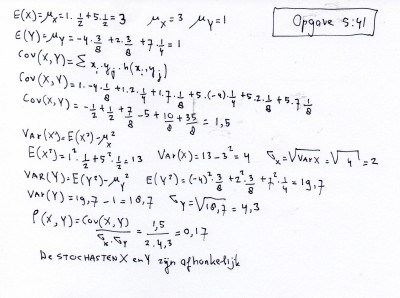 Opgave 5:41
E(X)=μx=1·½+5·½=3 μx=3 μy=1
E(Y)=μy=-4·3/8+2·3/8+7·1/4=1
Cov(X,Y)=∑xi·yj·h(xi,yj)
Cov(X,Y)=1·-4·1/8+1·2·1/4+1·7·1/8+5·(-4)·1/4+5·2·1/8+5·7·1/8
Cov(X,Y)=-1/2+1/2+7/8-5+10/8+35/8=1,5
Var(X)=E(X²)-μx²
E(X²)=1²·1/2+5²·1/2=13 Var(X)=13-3²=4 σx=√VarX=√4=2
VAR(Y)=E(Y²)-μy² E(Y²)=(-4)²·3/8+2²·3/8+7²·1/4=19,7
Var(Y)=19,7-1=18,7 σy=√18,7=4,3
ρ(X,Y)=Cov(X,Y)/σx·σy=1,5/2·4,3=0,17
De STOCHASTEN X en Y zijn afhankelijk